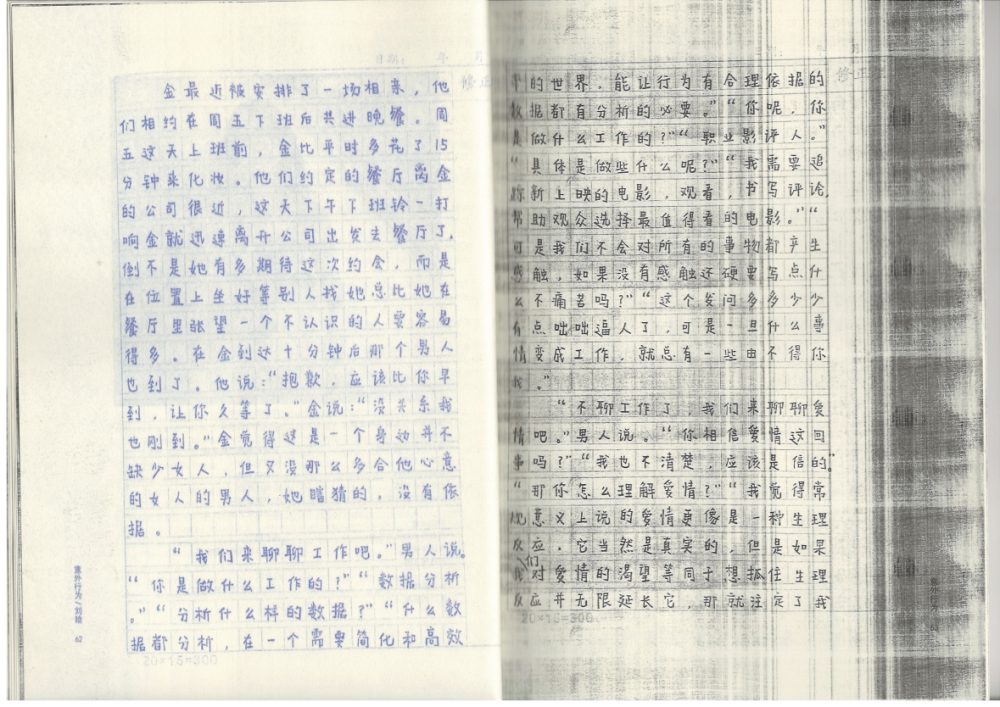 日期： 年 月
修正
金最近被安排了一场相亲，他
们相约在周五下班后共进晚餐。周
五这天上班前，金比平时多花了15
分钟来化妆。他们约定的餐厅离金
的公司很近，这天下午下班铃一打
响金就迅速离开公司出发去餐厅了。
倒不是她有多期待这次约会，而是
在位置上坐好等别人找她总比她在
餐厅里张望一个不认识的人要容易
得多。在金到达十分钟后那个男人
也到了。他说：“抱歉，应该比你早
到，让你久等了。”金说：“没关系我
也刚到。”金觉得这是一个身边并不
缺少女人，但又没那么多合他心意
的女人的男人，她瞎猜的，没有依
据。
“我们来聊聊工作吧。”男人说。
“你是做什么工作的？”“数据分析
。”“分析什么样的数据？”“什么数
据都分析，在一个需要简化和高效
20×15=300
意外行为／刘
62
月
修正
的世界，能让行为有合理依据的
数据都有分析的必要。”“你呢，你
是做什么工作的？”“职业影评人。”
“具体是做些什么呢？”“我需要追
踪新上映的电影，观看，书写评论，
帮助观众选择最值得看的电影。”“
可是我们不会对所有的事物都产生
感触，如果没有感触还硬要写点什
么不痛苦吗？”“这个发问多多少少
有点咄咄逼人了，可是一旦什么事
情变成工作，就总有一些由不得你
我。”
“不聊工作了，我们来聊聊爱
情吧。”男人说。“你相信爱情这回
事吗？”“我也不清楚，应该是信的。”
“那你怎么理解爱情？”“我觉得常
规意义上说的爱情更像是一种生理
反应，它当然是真实的，但是如果
我们对爱情的渴望等同于想抓住生理
反应并无限延长它，那就注定了我
20×15=300